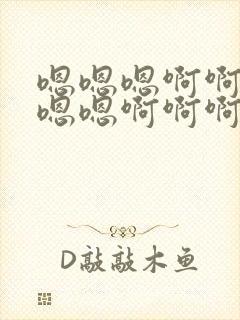 嗯嗯嗯啊啊
嗯嗯啊啊啊
D敲敲木鱼